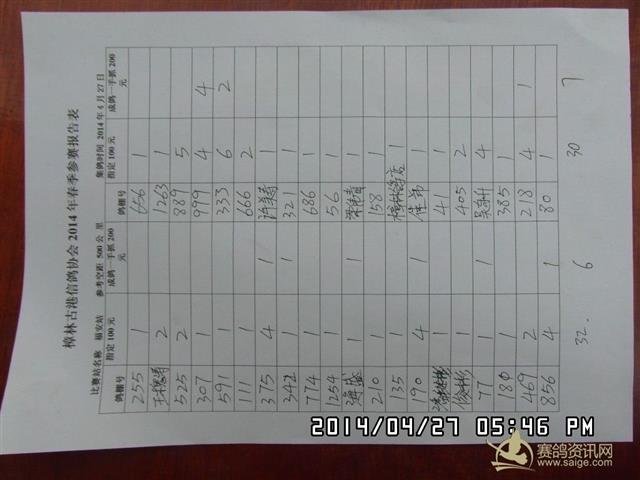 樟林古港信鸽协会 2014 年春季参赛报告表
比赛站名称 福安站 参考空距 500 公里 集鸽时间 2014 年 4 月 27 日
鸽棚号 指定 100 元 成鸽一手抓 200 鸽棚号 指定 100 元 成鸽一手抓 200
255 1 656 1
2 1263 1
525 2 889 5
307 1 999 4 4
591 1 333 6 2
111 1 666 2
375 4 1 1
342 1 1 321 1
774 1 686 1
1254 1 56 1
海盛 1 1 1
210 1 158 1
135 1 樟林鸽店 1
190 4 1 佳弟 1
1 41 1
俊彬 1 405 2
77 1 1 4
180 1 385 1
469 2 218 4 1
856 4 1 80 1
32. 6 30 7
2014/04/27 05:46 PM
赛鸽资讯网
www.saige.com